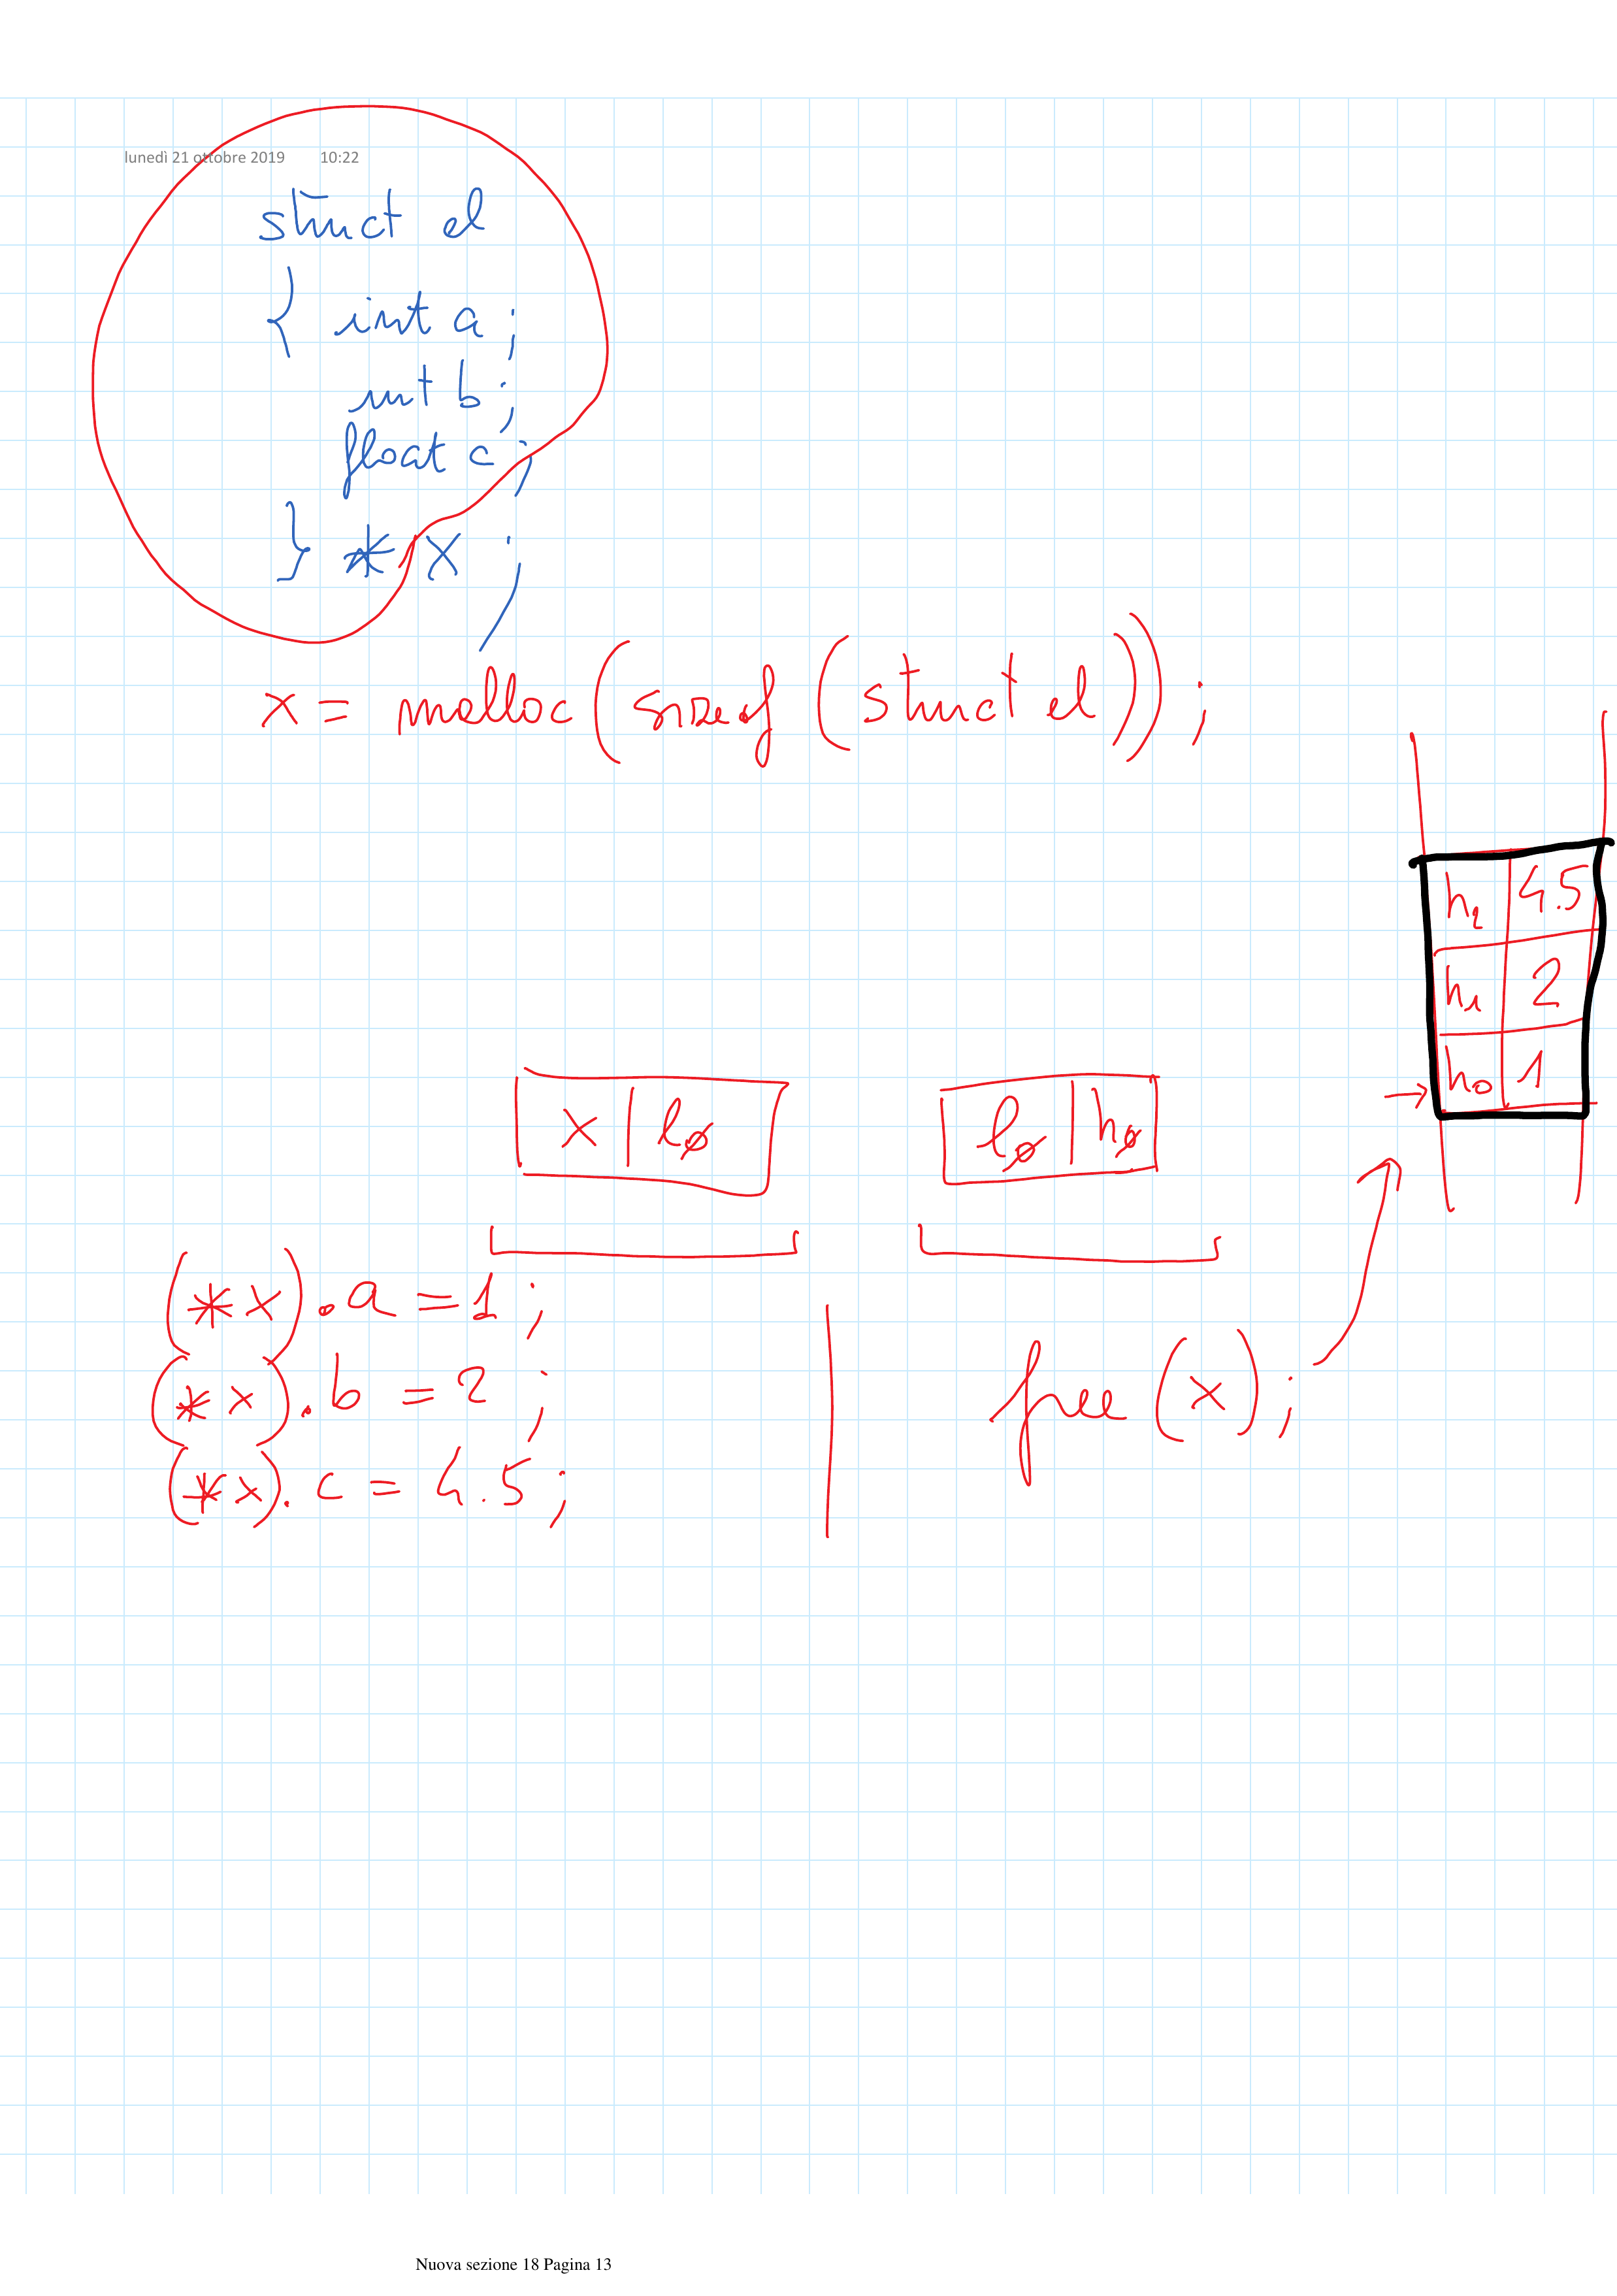 lunedì 21 ottobre 2019 10:22
struct el
{ int a;
int b;
float c;
} * x ;
x = malloc (sizeof (struct el));
h2 4.5
h1 2
h0 1
x | l0 l0 | h0
(*x).a = 1;
(*x).b = 2;
(*x).c = 4.5;
free (x);
Nuova sezione 18 Pagina 13